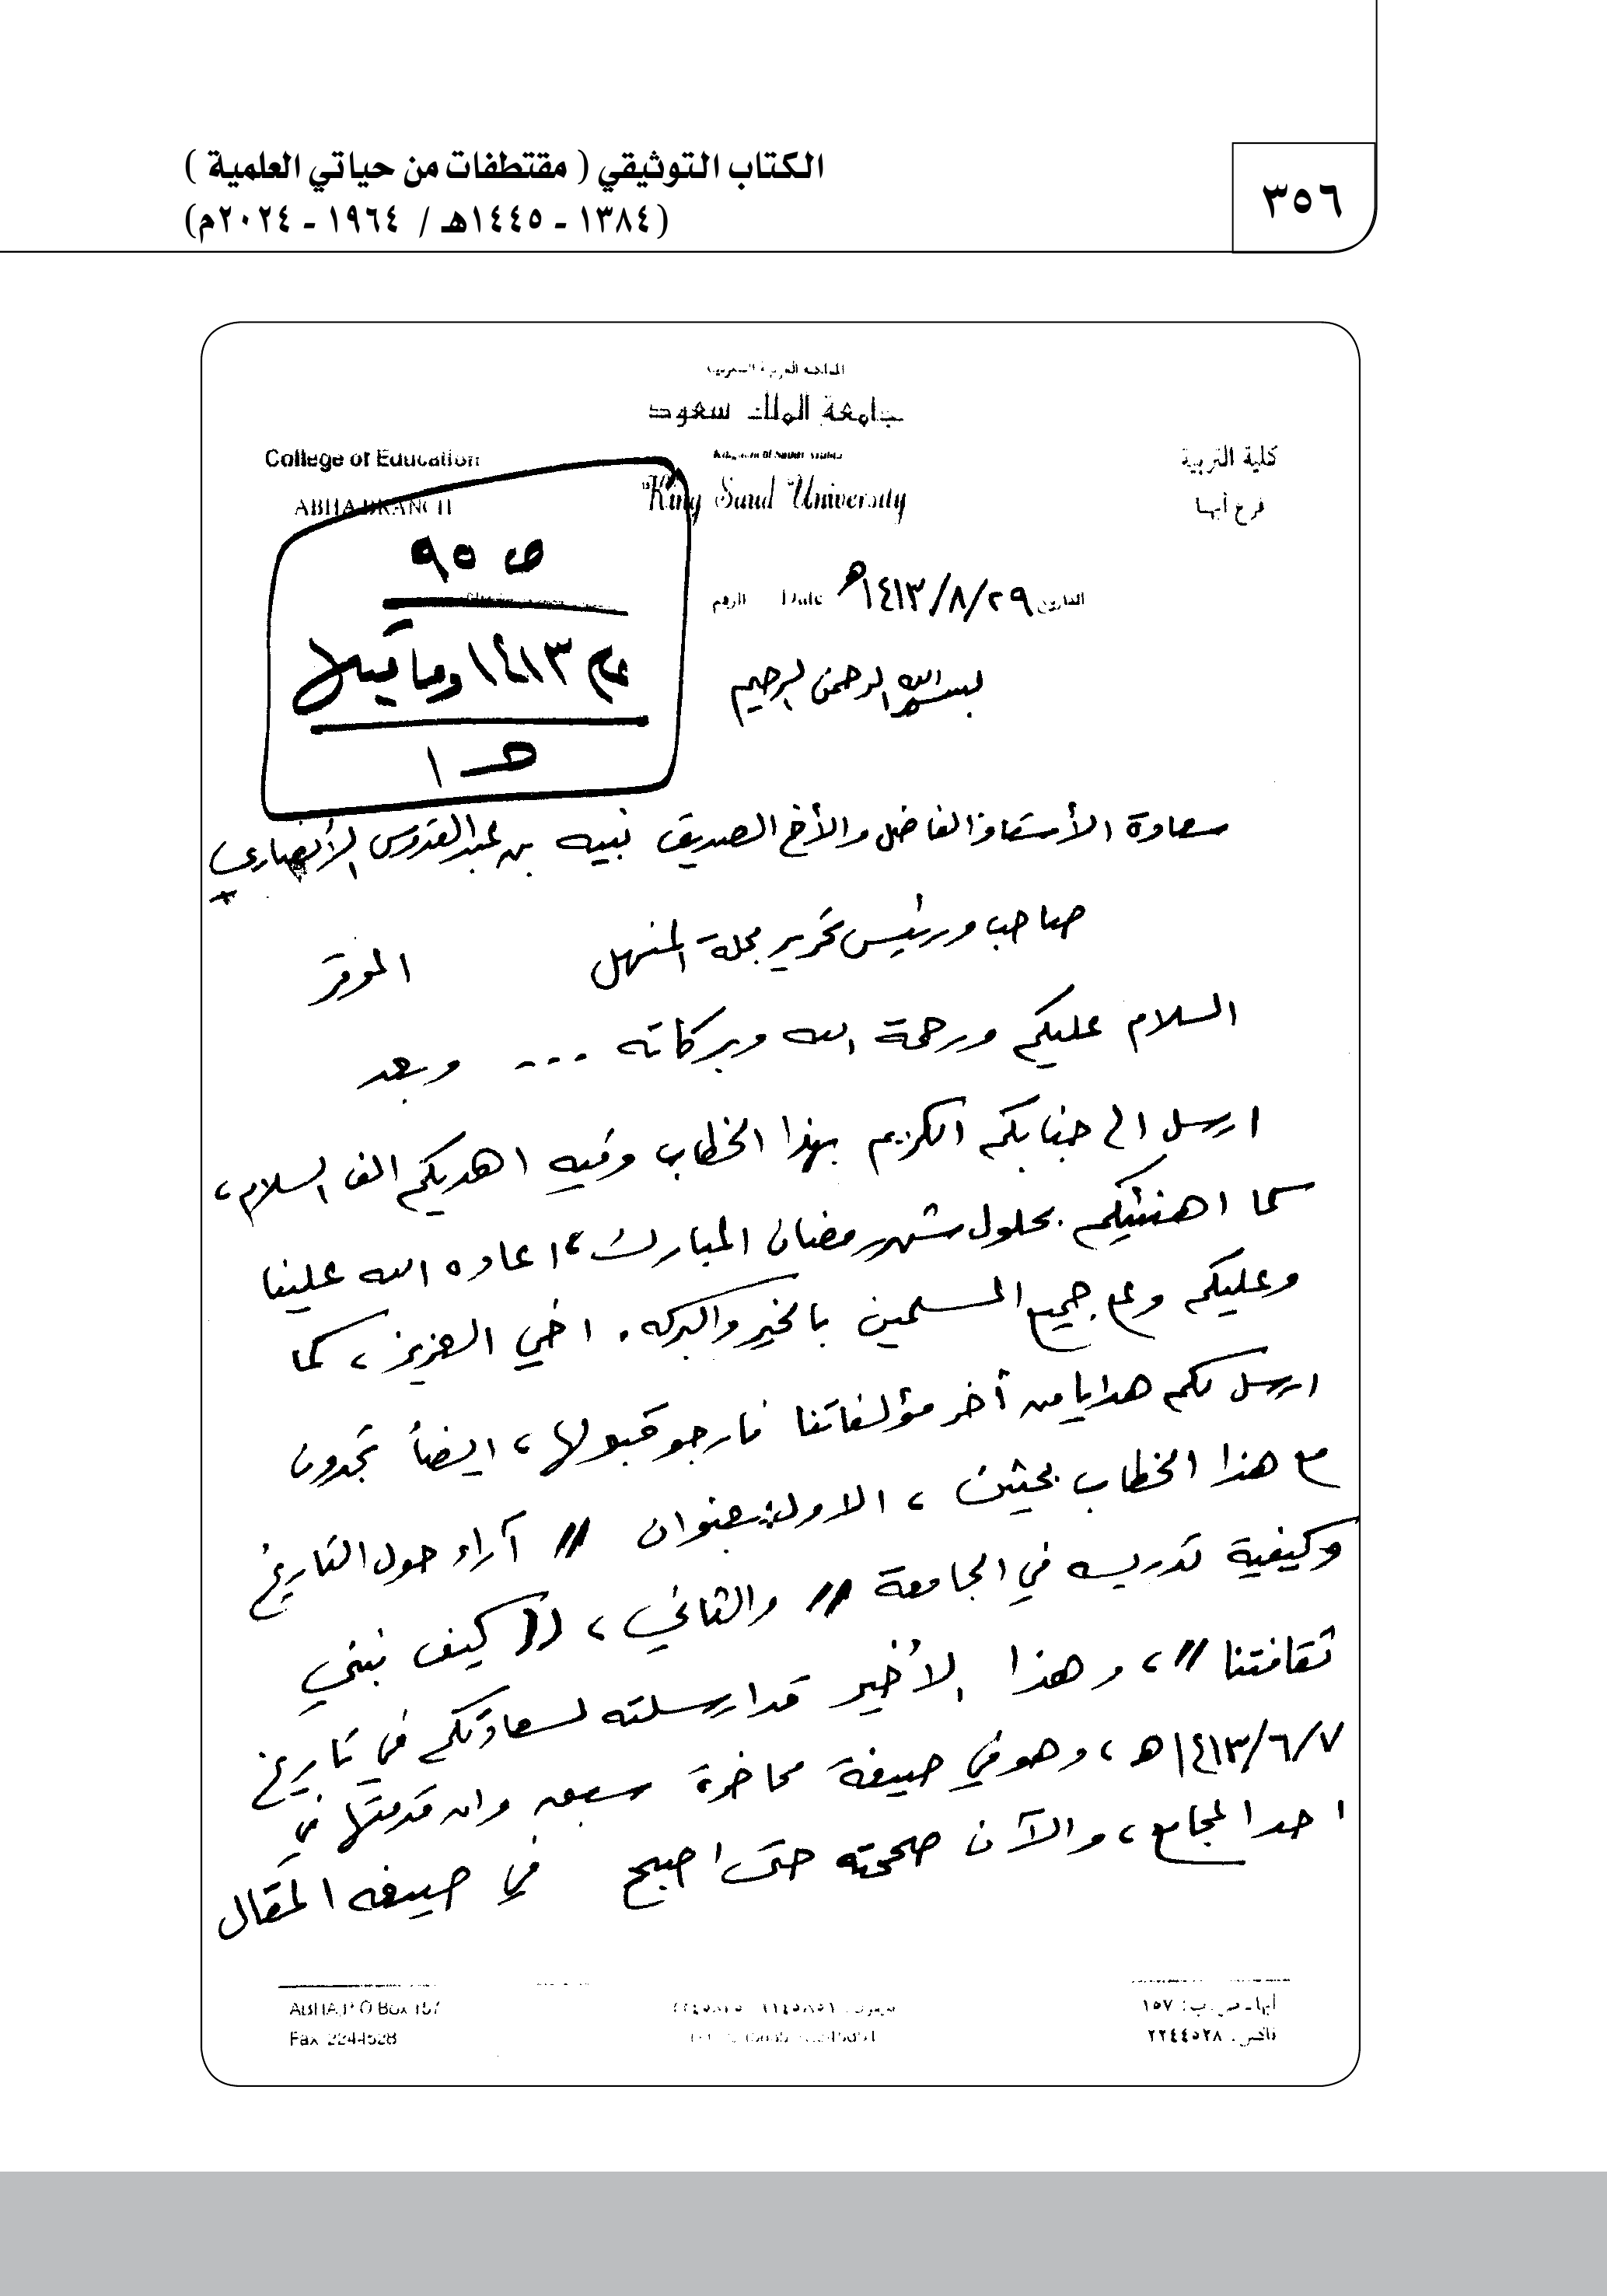 الكتاب التوثيقي ( مقتطفات من حياتي العلمية )
(١٣٨٤ ـ ١٤٤٥هـ / ١٩٦٤ ـ ٢٠٢٤م)
٣٥٦
المملكة العربية السعودية
جامعة الملك سعود
Kingdom of Saudi Arabia
King Saud University
كلية التربية
فرع أبها
College of Education
ABHA BRANCH
ص ٩٥
عام ١٤١٣ وما قبلها
حـ ١
التاريخ ١٤١٣/٨/٢٩هـ Date الرقم
بسم الله الرحمن الرحيم
سعادة الأستاذ الفاضل والأخ الصديق نبيه بن عبدالقدوس الأنصاري
صاحب ورئيس تحرير مجلة المنهل الموقر
السلام عليكم ورحمة الله وبركاته ... وبعد
ارسل الى جنابكم الكريم بهذا الخطاب وفيه اهديكم الف السلام،
كما اهنئيكم بحلول شهر رمضان المبارك، اعاده الله علينا
وعليكم وعلى جميع المسلمين بالخير والبركه. اخي العزيز، كما
ارسل لكم هدايا من أخر مؤلفاتنا فارجو قبولها، ايضاً تجدون
مع هذا الخطاب بحثين، الاول: بعنوان // آراء حول التاريخ
وكيفية تدريسه في الجامعة // والثاني، (( كيف نبني
ثقافتنا //، وهذا الأخير قد ارسلته لسعادتكم في تاريخ
١٤١٣/٦/٧هـ، وهو في صيغة محاضرة سبق وان قدمتها في
احد المجامع، والآن صححته حتى اصبح في صيغه المقال
ABHA,P O Box 157
Fax 2244528
أبها ـ ص.ب: ١٥٧
فاكس: ٢٢٤٤٥٢٨